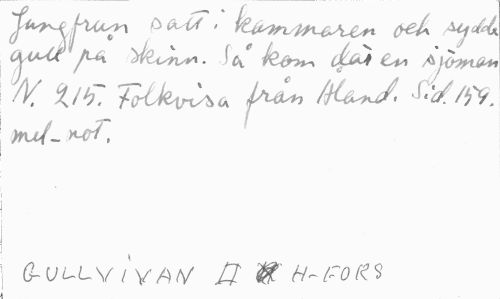 Jungfrun satt i kammaren och sydde
gull på skinn. Så kom där en sjöman
N. 215. Folkvisa från Åland. Sid. 159.
mel-not.
GULLVIVAN II H-FORS